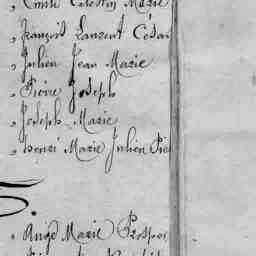 „ Emile Celestin Marie
„ François Laurent César
„ Julien Jean Marie
„ Pierre Joseph
„ Joseph Marie
„ Henri Marie Julien Pie
„ Ange Marie Prosper